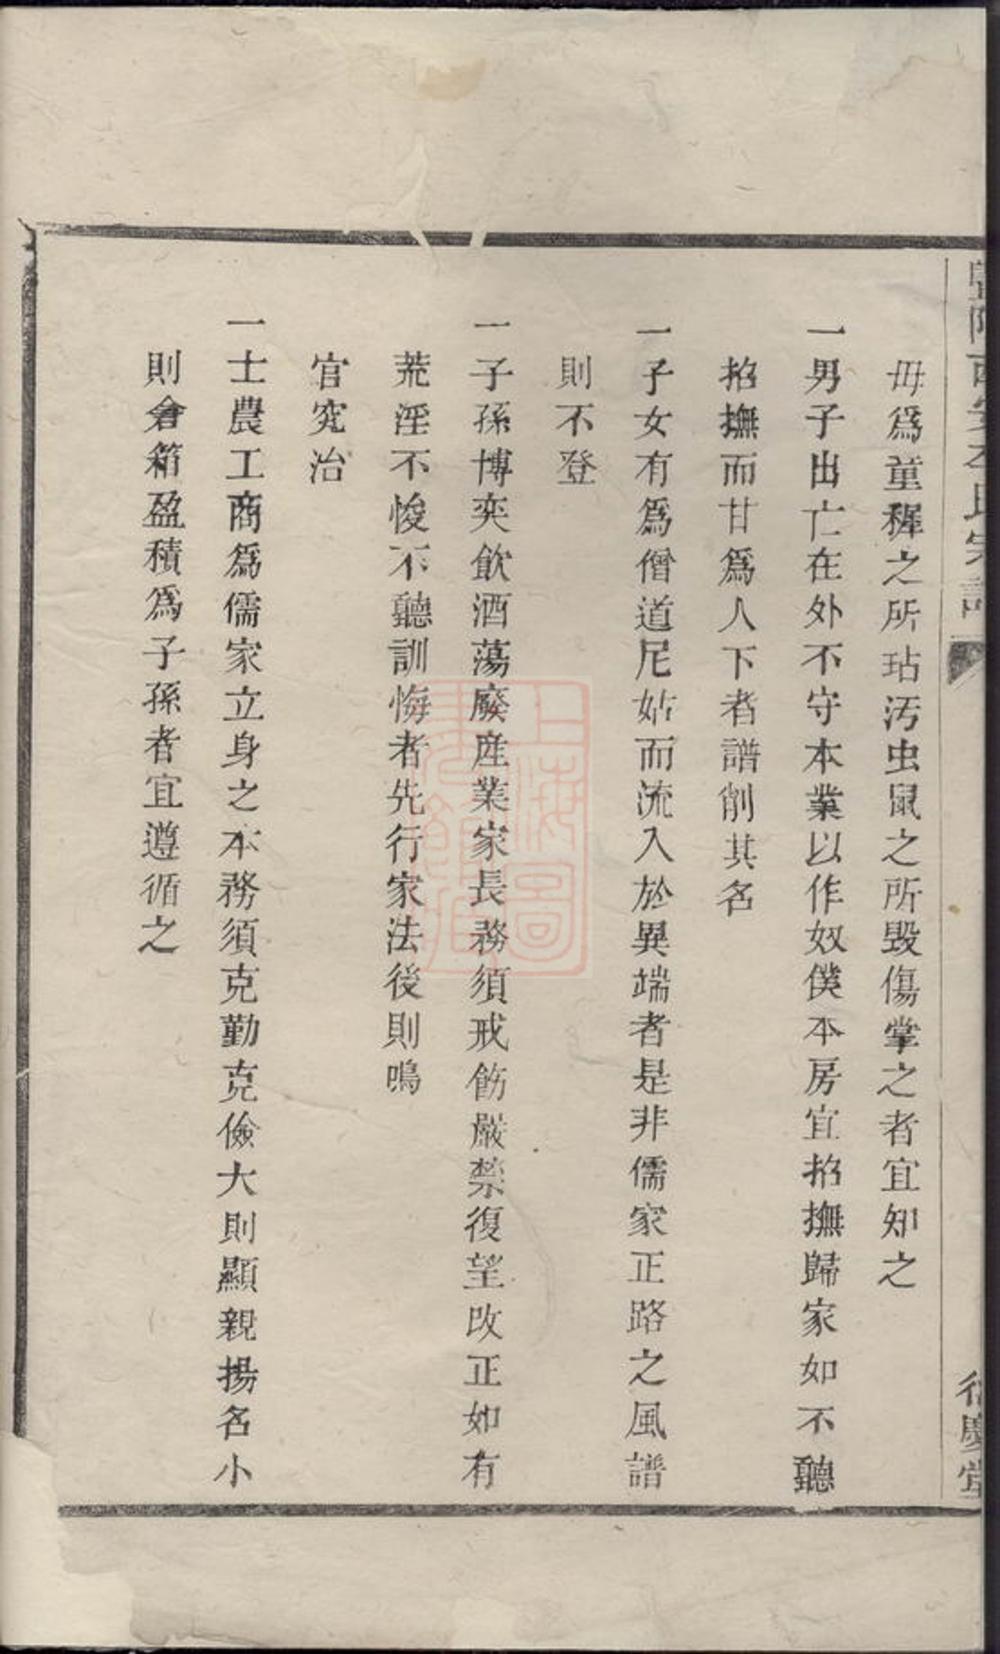 毋爲童穉之所玷汚虫鼠之所毀傷掌之者宜知之
一男子出亡在外不守本業以作奴僕本房宜招撫歸家如不聽
招撫而甘爲人下者譜削其名
一子女有爲僧道尼姑而流入於異端者是非儒家正路之風譜
則不登
一子孫博奕飲酒蕩廢産業家長務須戒飭嚴禁復望改正如有
荒淫不悛不聽訓悔者先行家法後則鳴
官究治
一士農工商爲儒家立身之本務須克勤克儉大則顯親揚名小
則倉箱盈積爲子孫者宜遵循之
上海圖